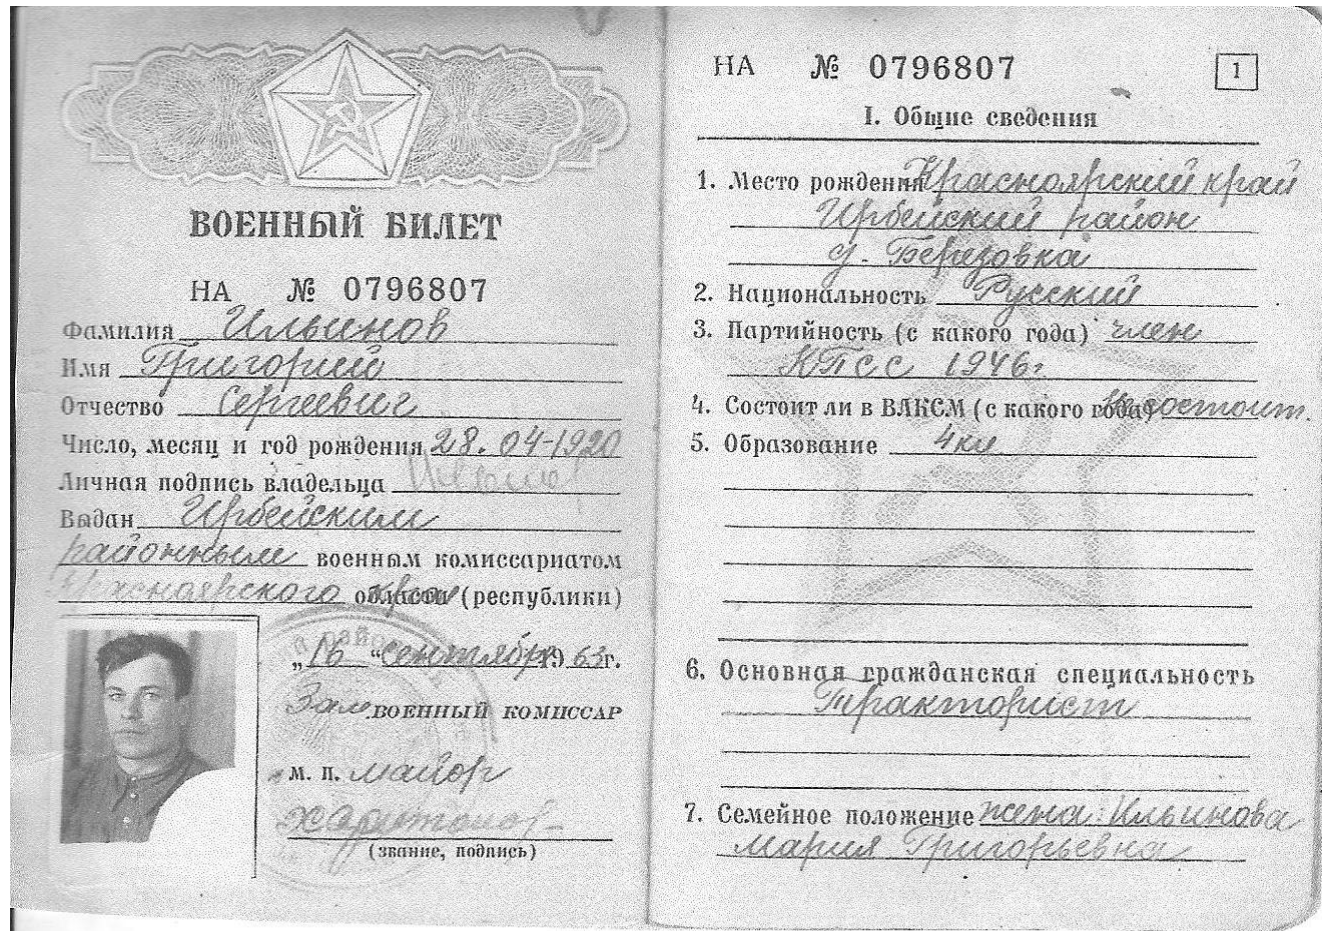 ВОЕННЫЙ БИЛЕТ
НА № 0796807
Фамилия Ильинов
Имя Григорий
Отчество Сергеевич
Число, месяц и год рождения 28.04-1920
Личная подпись владельца
Выдан Ирбейским
районным военным комиссариатом
Красноярского области края (республики)
„16“ сентября 1963г.
Зам. ВОЕННЫЙ КОМИССАР
м. п. майор
Харитонов
(звание, подпись)
НА № 0796807
1
I. Общие сведения
1. Место рождения Красноярский край
Ирбейский район
д. Березовка
2. Национальность Русский
3. Партийность (с какого года) член
КПСС 1946г
4. Состоит ли в ВЛКСМ (с какого года) Не состоит.
5. Образование 4кл
6. Основная гражданская специальность
Тракторист
7. Семейное положение жена: Ильинова
Мария Григорьевна